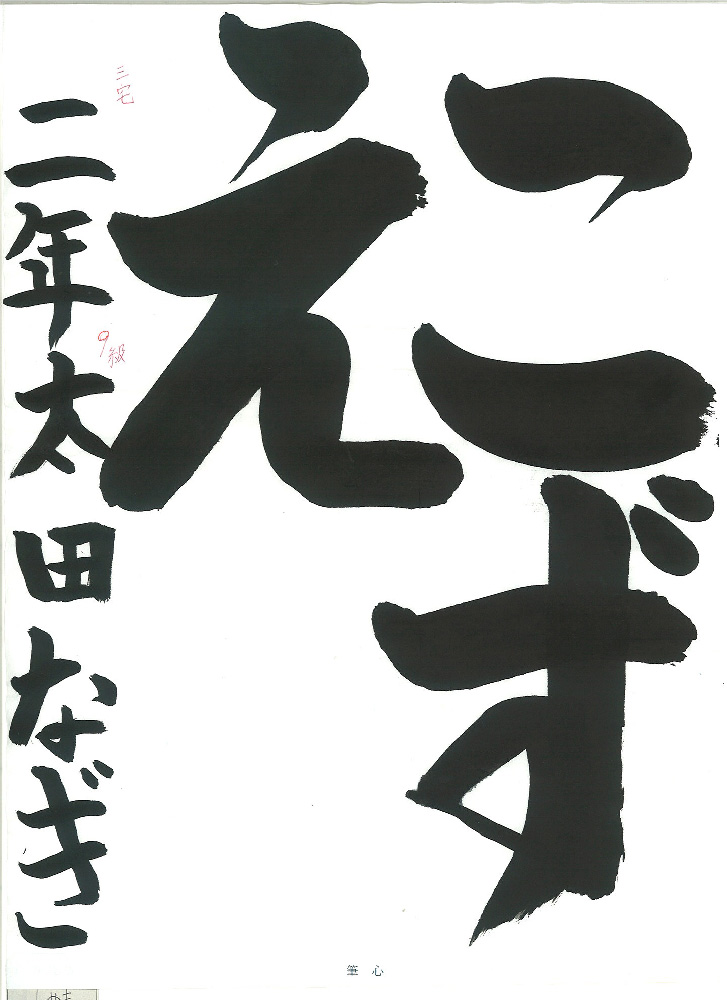 こずえ
二年太田なぎ
三宅
9級
筆心